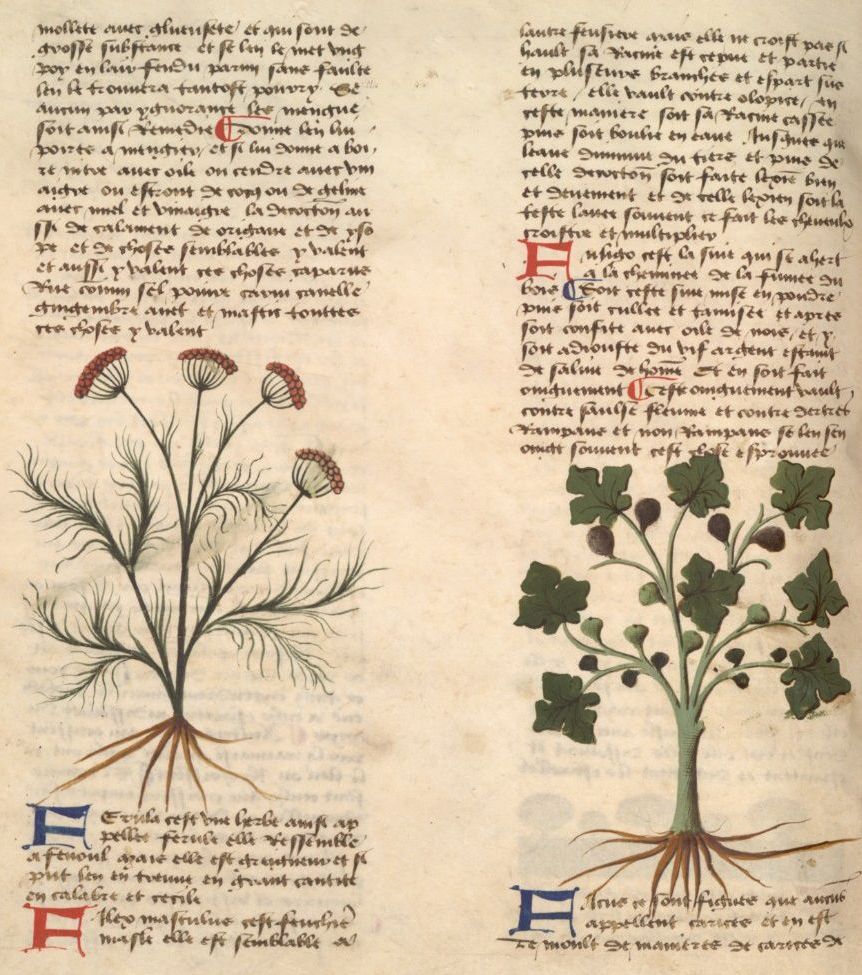 mollete avec glueusete et qui sont de
grosse substance et se len le met ung
poy en lair fendu parmi sans faulte
len le trouvera tantost pourry Se
aucun par ygnorance les mengue
soit ainsi Remedie Donne len lui
poires a mengier et si lui donne a boi
re nitre avec oile ou cendre avec vin
aigre ou estront de cocq ou de geline
avec miel et vinaigre la decoction au
ssi de calament de origane et de yso
pe et de choses semblables y valent
et aussi y valent ces choses caparus
Rue comin sel poivre carvi canelle
gingembre anet et mastic toutes
ces choses y valent
Erula cest une herbe ainsi ap
pellee ferule elle Ressemble
a fenoul mais elle est greigneur et si
put len en treuve en grant cantite
en calabre et cecile
Filex mastulus cest feuchiere
masle elle est semblable a
lautre feusiere mais elle ne croist pas si
hault sa Racine est cepue et partie
en pluseurs branches et espart sus
terre elle vault contre olopice en
ceste maniere soit sa Racine cassee
puis soit boulie en eaue Jusques que
leaue diminue du tiers et puis de
celle decoction soit faite lexive bien
et deuement et de celle lexive soit la
teste lavee souvent ce fait les cheveulx
croistre et multiplier
Fuligo cest la suie qui se ahert
a la cheminee de la fumee du
bois Soit ceste suie mise en poudre
puis soit cullee et tamisee et apres
soit confite avec oile de nois et y
soit adiouste du vif argent estaint
de salive de homme Et en soit fait
oniguement Cest oniguement vault
contre faulse fleume et contre dertres
Rampans et non Rampans se len sen
oingt souvent cest chose esprouvee
Ficus ce sont figues que aucuns
appellent carices et en est
de moult de manieres de carices